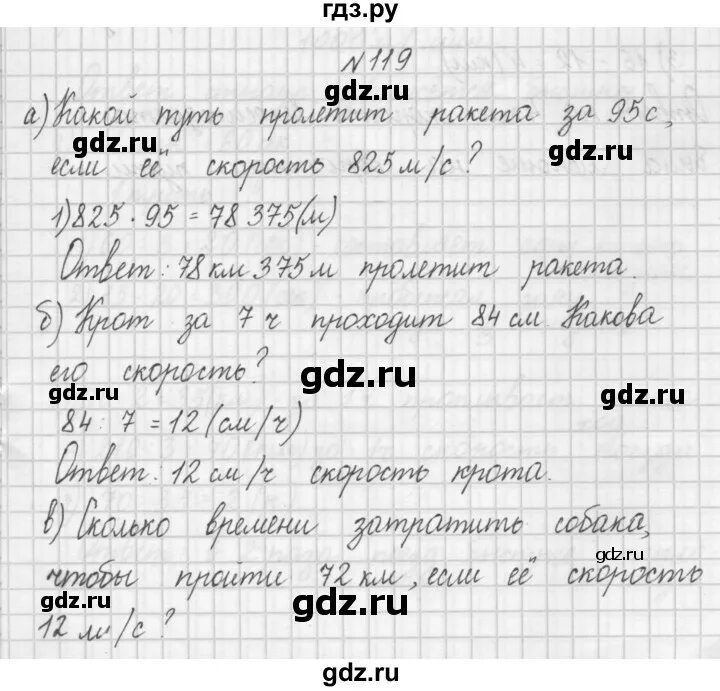 гдз.ру
№119
а) Какой путь пролетит ракета за 95 с,
gdz.ru
gdz.ru
если её скорость 825 м/с?
1) 825 · 95 = 78 375 (м)
Ответ: 78 км 375 м пролетит ракета.
gdz.ru
gdz.ru
б) Крот за 7 ч проходит 84 см. Какова
его скорость?
gdz.ru
gdz.ru
gdz.ru
84 : 7 = 12 (см/ч)
Ответ: 12 см/ч скорость крота.
в) Сколько времени затратить собака,
gdz.ru
чтобы пройти 72 км, если её скорость
gdz.ru
gdz.ru
12 м/с?
gdz.ru